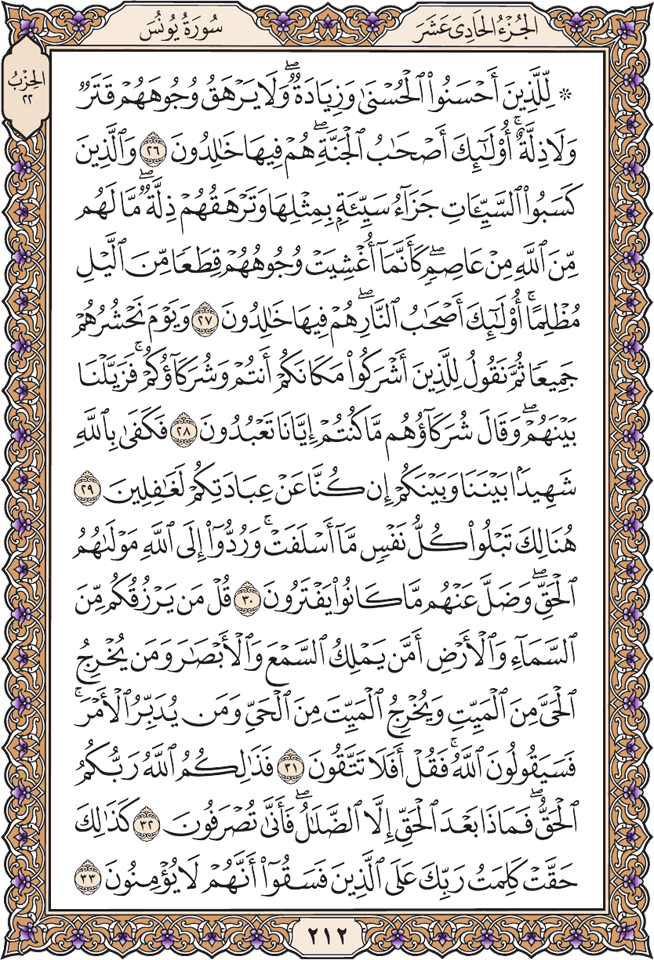 الجُزْءُ الحَادِى عَشَرَ
سُورَةُ يُونُسَ
الحِزْبُ
٢٢
۞ لِّلَّذِينَ أَحۡسَنُواْ ٱلۡحُسۡنَىٰ وَزِيَادَةٞۖ وَلَا يَرۡهَقُ وُجُوهَهُمۡ قَتَرٞ
وَلَا ذِلَّةٌۚ أُوْلَٰٓئِكَ أَصۡحَٰبُ ٱلۡجَنَّةِۖ هُمۡ فِيهَا خَٰلِدُونَ ٢٦ وَٱلَّذِينَ
كَسَبُواْ ٱلسَّيِّـَٔاتِ جَزَآءُ سَيِّئَةِۭ بِمِثۡلِهَا وَتَرۡهَقُهُمۡ ذِلَّةٞۖ مَّا لَهُم
مِّنَ ٱللَّهِ مِنۡ عَاصِمٖۖ كَأَنَّمَآ أُغۡشِيَتۡ وُجُوهُهُمۡ قِطَعٗا مِّنَ ٱلَّيۡلِ
مُظۡلِمًاۚ أُوْلَٰٓئِكَ أَصۡحَٰبُ ٱلنَّارِۖ هُمۡ فِيهَا خَٰلِدُونَ ٢٧ وَيَوۡمَ نَحۡشُرُهُمۡ
جَمِيعٗا ثُمَّ نَقُولُ لِلَّذِينَ أَشۡرَكُواْ مَكَانَكُمۡ أَنتُمۡ وَشُرَكَآؤُكُمۡۚ فَزَيَّلۡنَا
بَيۡنَهُمۡۖ وَقَالَ شُرَكَآؤُهُم مَّا كُنتُمۡ إِيَّانَا تَعۡبُدُونَ ٢٨ فَكَفَىٰ بِٱللَّهِ
شَهِيدَۢا بَيۡنَنَا وَبَيۡنَكُمۡ إِن كُنَّا عَنۡ عِبَادَتِكُمۡ لَغَٰفِلِينَ ٢٩
هُنَالِكَ تَبۡلُواْ كُلُّ نَفۡسٖ مَّآ أَسۡلَفَتۡۚ وَرُدُّوٓاْ إِلَى ٱللَّهِ مَوۡلَىٰهُمُ
ٱلۡحَقِّۖ وَضَلَّ عَنۡهُم مَّا كَانُواْ يَفۡتَرُونَ ٣٠ قُلۡ مَن يَرۡزُقُكُم مِّنَ
ٱلسَّمَآءِ وَٱلۡأَرۡضِ أَمَّن يَمۡلِكُ ٱلسَّمۡعَ وَٱلۡأَبۡصَٰرَ وَمَن يُخۡرِجُ
ٱلۡحَيَّ مِنَ ٱلۡمَيِّتِ وَيُخۡرِجُ ٱلۡمَيِّتَ مِنَ ٱلۡحَيِّ وَمَن يُدَبِّرُ ٱلۡأَمۡرَۚ
فَسَيَقُولُونَ ٱللَّهُۚ فَقُلۡ أَفَلَا تَتَّقُونَ ٣١ فَذَٰلِكُمُ ٱللَّهُ رَبُّكُمُ
ٱلۡحَقُّۖ فَمَاذَا بَعۡدَ ٱلۡحَقِّ إِلَّا ٱلضَّلَٰلُۖ فَأَنَّىٰ تُصۡرَفُونَ ٣٢ كَذَٰلِكَ
حَقَّتۡ كَلِمَتُ رَبِّكَ عَلَى ٱلَّذِينَ فَسَقُوٓاْ أَنَّهُمۡ لَا يُؤۡمِنُونَ ٣٣
٢١٢